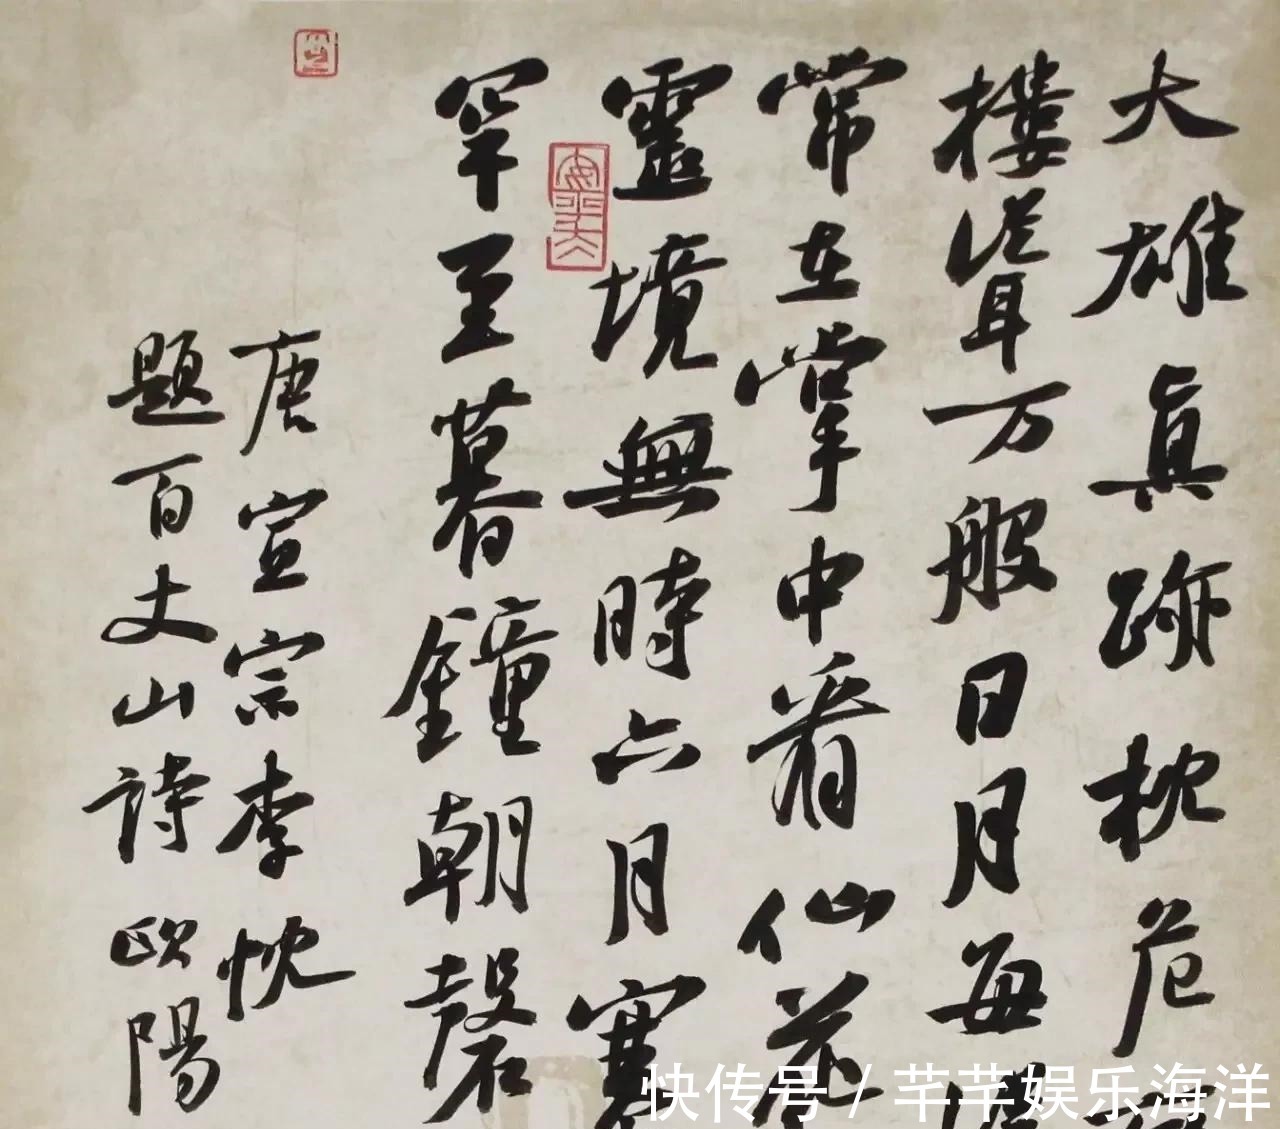 大雄眞跡枕危
樓聳万般日月每
常在掌中看仙花
靈境無時六月寒
罕至暮鐘朝磬
唐宣宗李忱
題百丈山詩 歐陽
快传号 / 芊芊娱乐海洋